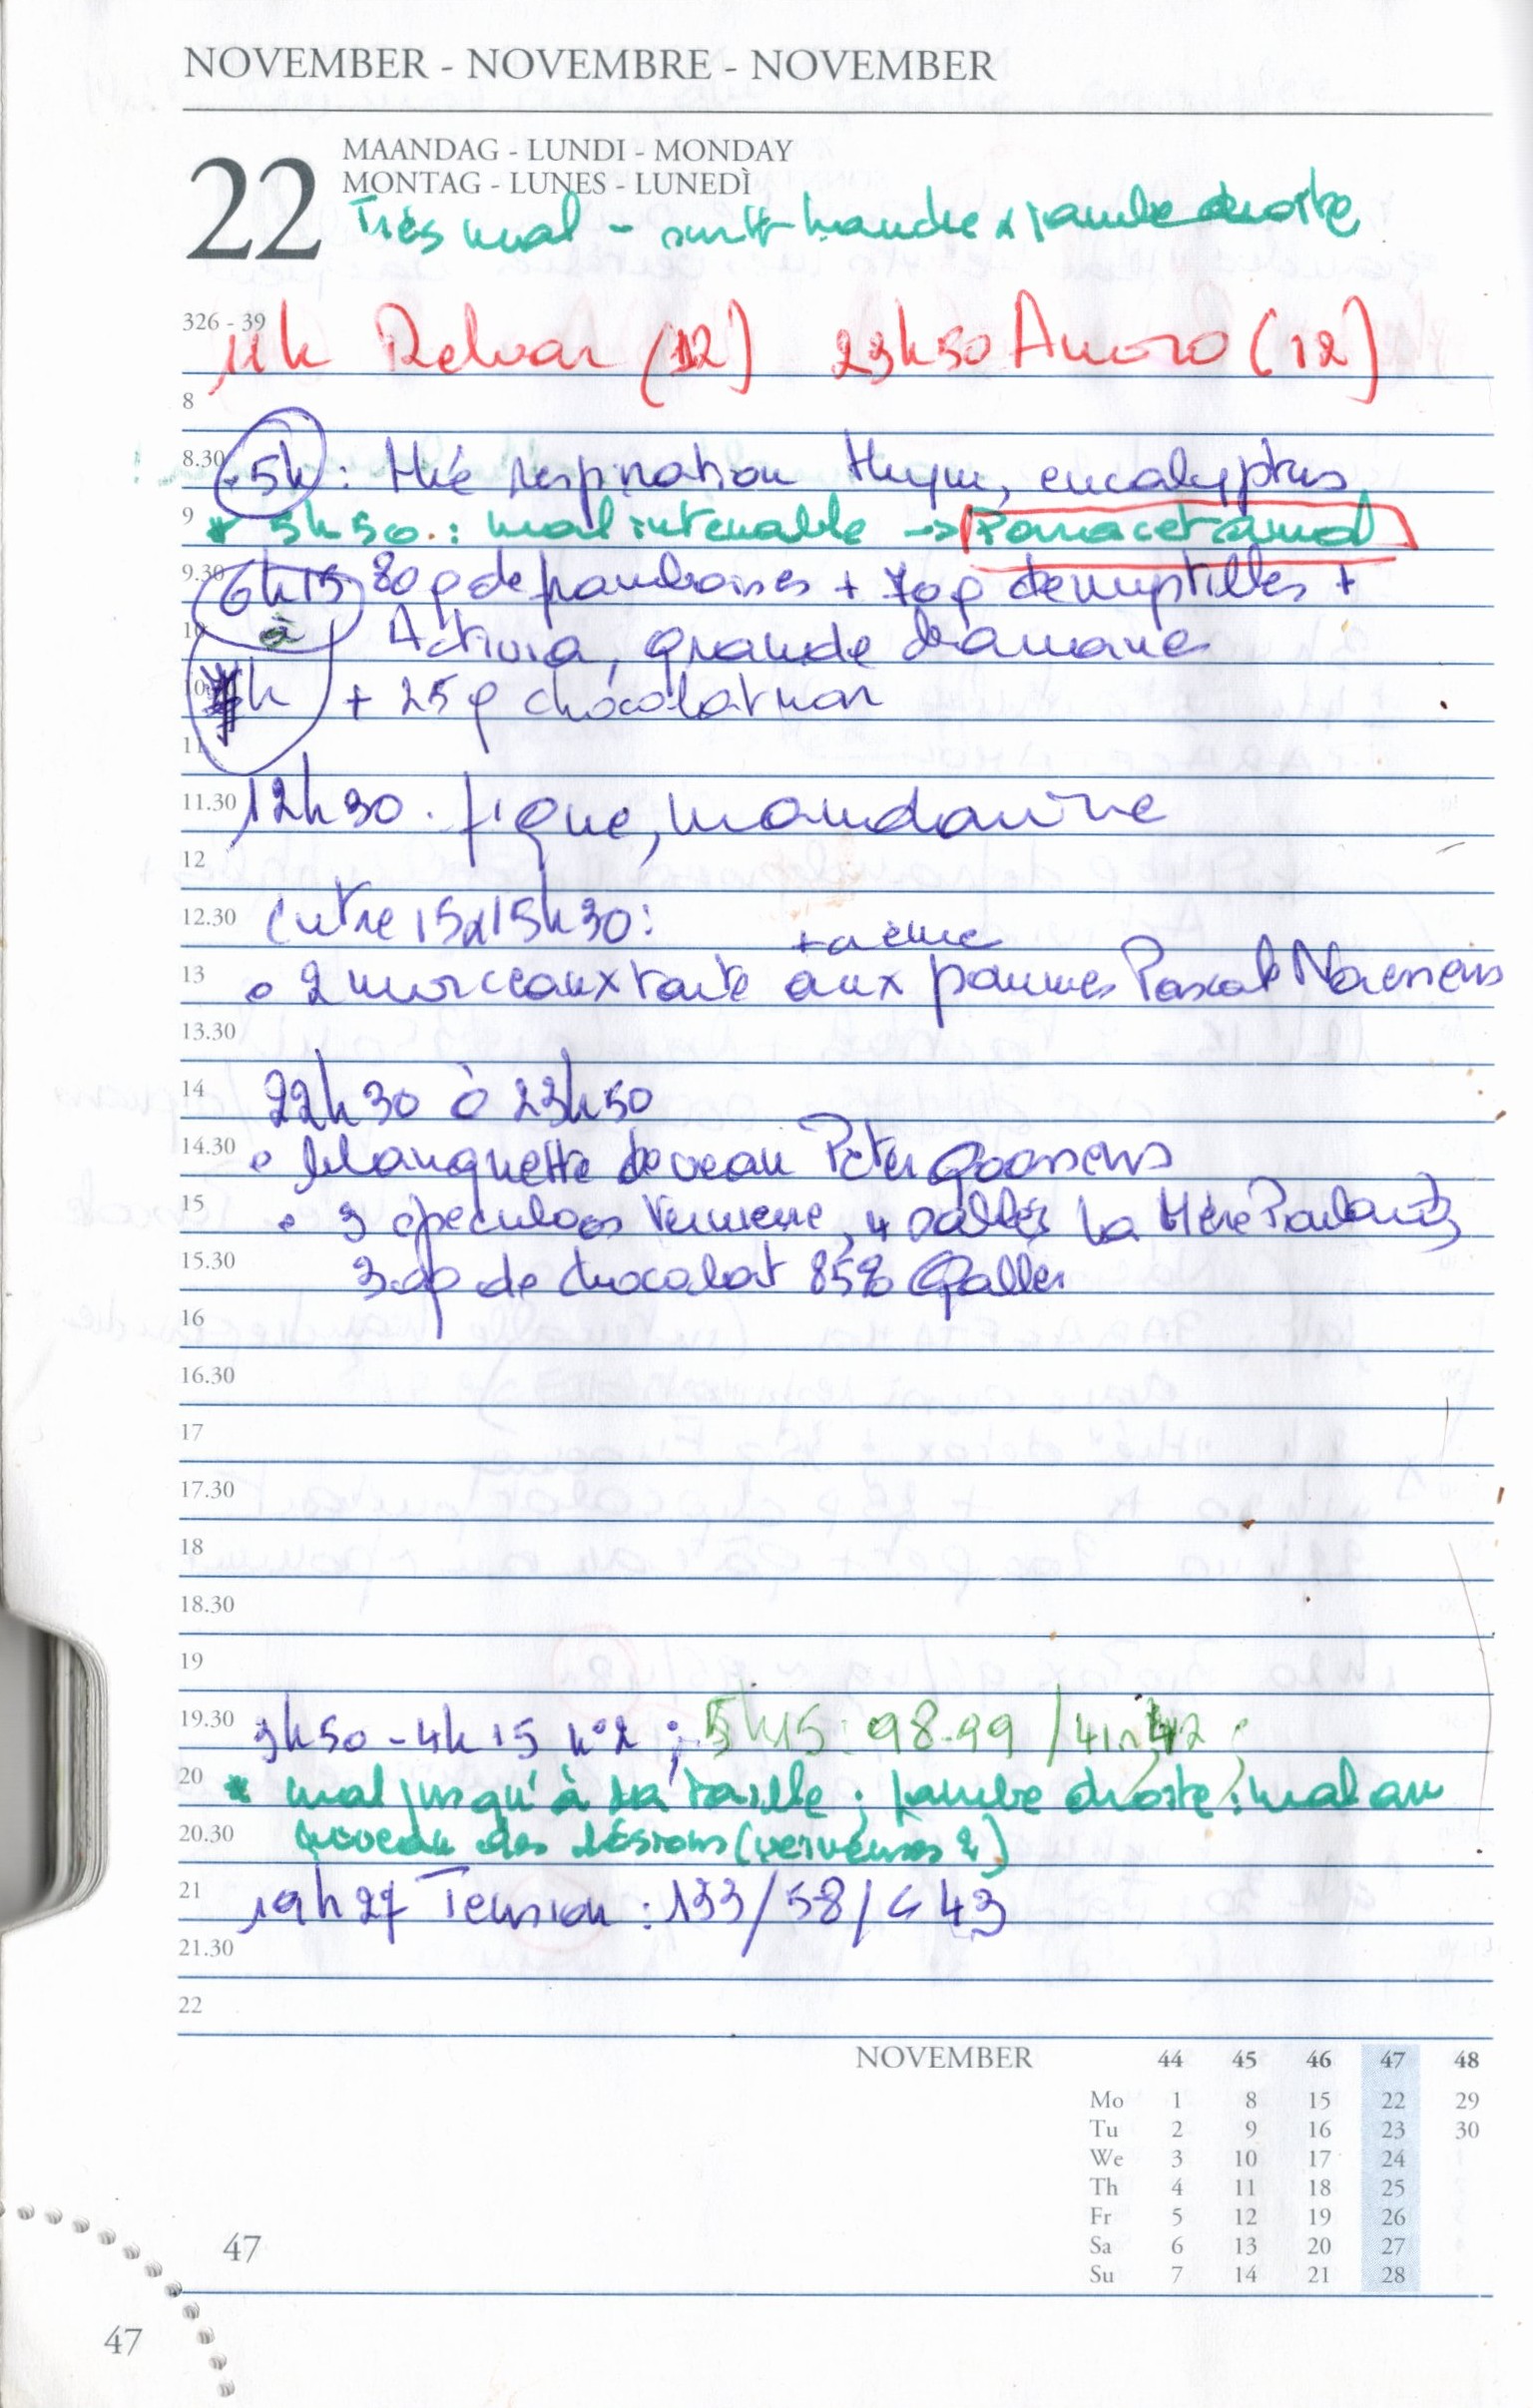 NOVEMBER - NOVEMBRE - NOVEMBER
22
MAANDAG - LUNDI - MONDAY
MONTAG - LUNES - LUNEDÌ
Très mal - surtt hanche & jambe droite
326 - 39
11h Relvar (12) 23h50 Anoro (12)
8
8.30 5h : thé respiration thym, eucalyptus
9 * 5h50 : mal intenable -> Paracetamol
9.30 6h15 80g de framboises + 70g de myrtilles +
10 à Activia, grande banane
h + 25g chocolat noir
11
11.30 12h30. figue, mandarine
12
12.30 Entre 15 & 15h30 :
+ crème
13 • 2 morceaux tarte aux pommes Pascale Naessens
13.30
14 22h30 à 23h50
14.30 • blanquette de veau Peter Goossens
15 • 3 speculoos Vermeire, 4 sablés La Mère Poulard,
15.30 30g de chocolat 85% Galler
16
16.30
17
17.30
18
18.30
19
19.30 3h50 - 4h15 n°2 ; 5h15 : 98-99 / 41 ;
20 * mal jusqu'à la taille ; jambe droite : mal au
20.30 niveau des lésions (verveuses ?)
21 19h27 Tension : 133/58/ 43
21.30
22
NOVEMBER 44 45 46 47 48
Mo 1 8 15 22 29
Tu 2 9 16 23 30
We 3 10 17 24
Th 4 11 18 25
Fr 5 12 19 26
Sa 6 13 20 27
Su 7 14 21 28
47
47